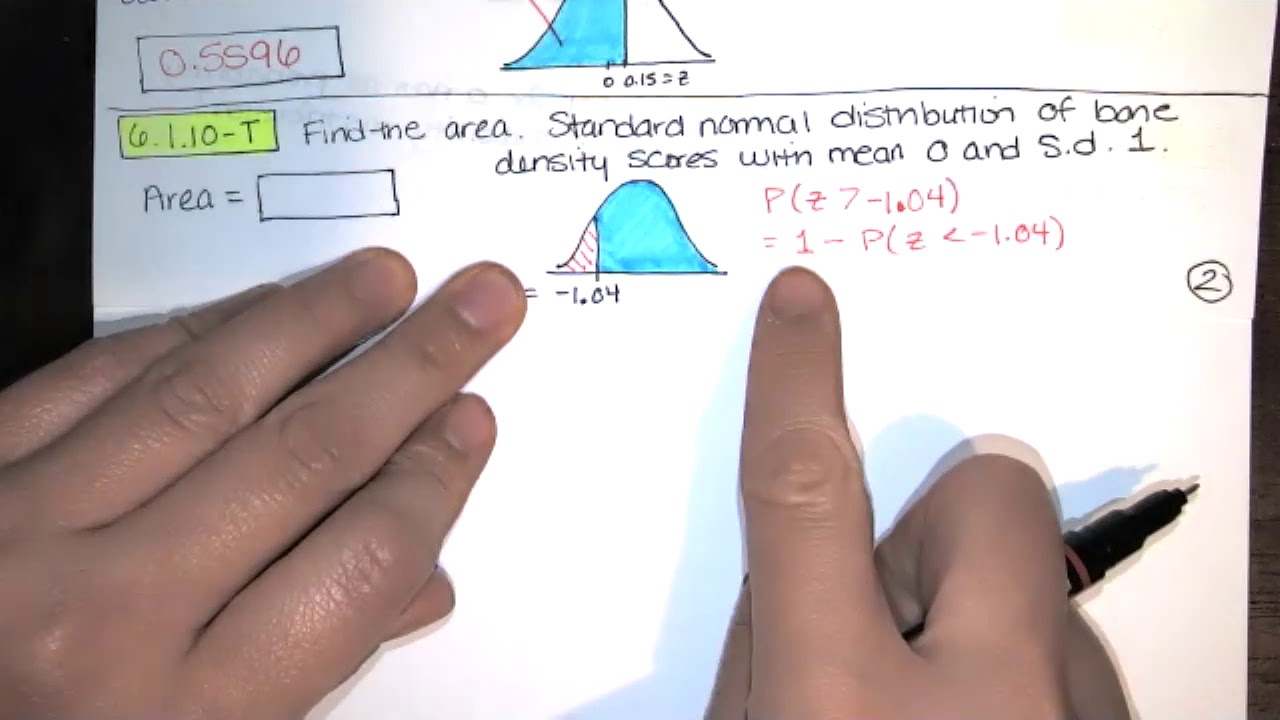 0.5596
0 0.15 = z
6.1.10-T Find the area. Standard normal distribution of bone
density scores with mean 0 and s.d. 1.
Area =
P(z > -1.04)
= 1 - P(z < -1.04)
= -1.04
2